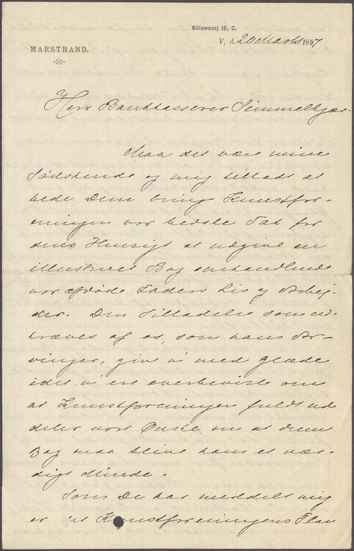 MARSTRAND.
V. d. 20 Marts 1897
Herr Bankkasserer Simmelkjær
Maa det være mine
Sødskende og mig tilladt at
bede Dem bringe Kunstfor-
eningen vor bedste Tak for
dens Hensigt at udgive en
illustreret Bog omhandlende
vor afdøde Faders Liv og Arbej-
der. Den Tilladelse som ud-
kræves af os, som hans Ar-
vinger, give vi med Glæde
idet vi ere overbeviste om
at Kunstforeningen fuldt ud
deler vort Ønske om at denne
Bog maa blive hans et vær-
digt Minde.
Som De har meddelt mig
er det Kunstforeningens Plan